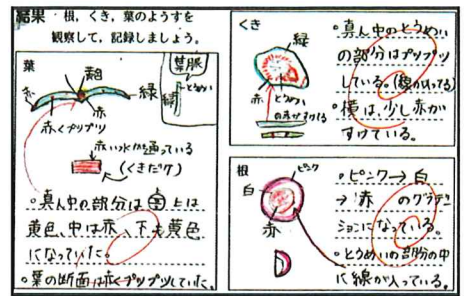 結果 根，くき，葉のようすを
観察して，記録しましょう。
葉
葉脈
とうめい
緑
赤
赤
緑
赤
赤くプリプリ
赤いつが通っている
(くきだけ)
真ん中の部分は 上は
黄色、中は赤、下も黄色
になっていた。
葉の断面は赤くプリプリしていた。
くき
緑
赤
とうめい
の赤がすけてる
真ん中のとうめい
の部分はプリプリ
している。(線が入ってる)
横は、少し赤か
すけている。
根
白
ピンク
赤
ピンク→白
→赤のグラデー
ションになっている。
とうめいの部分の中
に線が入っている。